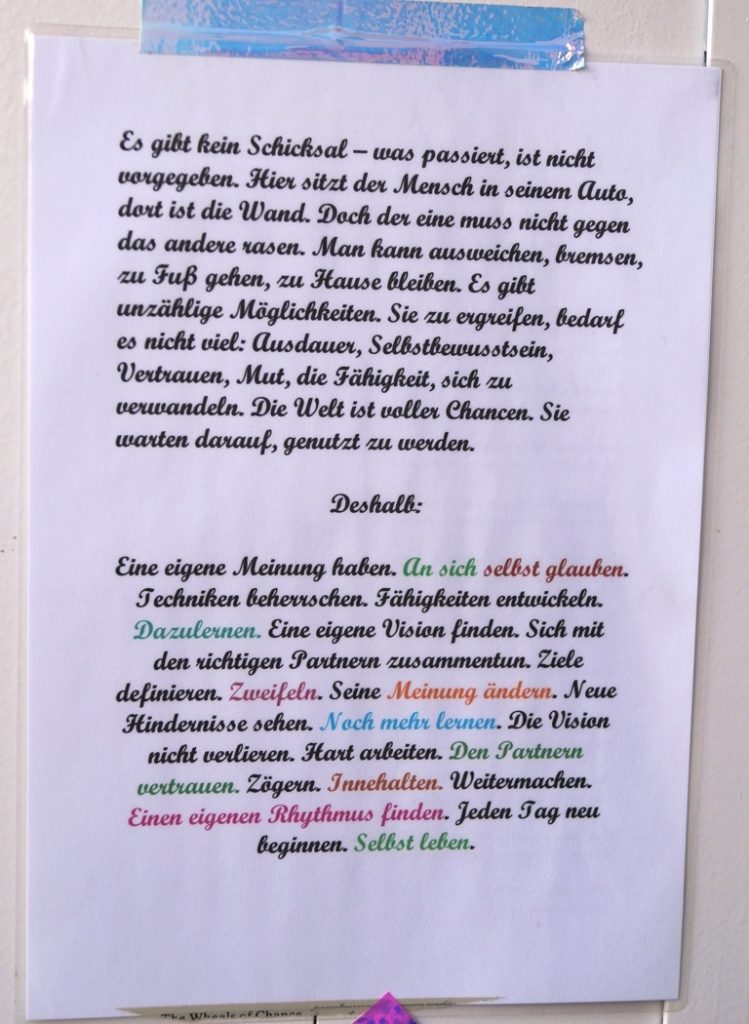 Es gibt kein Schicksal – was passiert, ist nicht
vorgegeben. Hier sitzt der Mensch in seinem Auto,
dort ist die Wand. Doch der eine muss nicht gegen
das andere rasen. Man kann ausweichen, bremsen,
zu Fuß gehen, zu Hause bleiben. Es gibt
unzählige Möglichkeiten. Sie zu ergreifen, bedarf
es nicht viel: Ausdauer, Selbstbewusstsein,
Vertrauen, Mut, die Fähigkeit, sich zu
verwandeln. Die Welt ist voller Chancen. Sie
warten darauf, genutzt zu werden.
Deshalb:
Eine eigene Meinung haben. An sich selbst glauben.
Techniken beherrschen. Fähigkeiten entwickeln.
Dazulernen. Eine eigene Vision finden. Sich mit
den richtigen Partnern zusammentun. Ziele
definieren. Zweifeln. Seine Meinung ändern. Neue
Hindernisse sehen. Noch mehr lernen. Die Vision
nicht verlieren. Hart arbeiten. Den Partnern
vertrauen. Zögern. Innehalten. Weitermachen.
Einen eigenen Rhythmus finden. Jeden Tag neu
beginnen. Selbst leben.
The Wheels of Chance